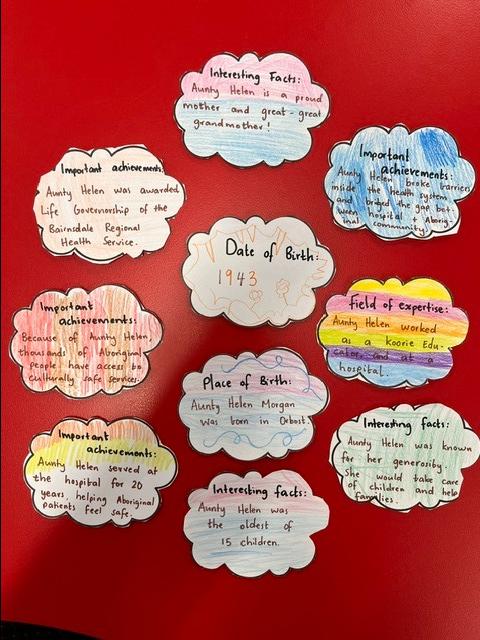 Interesting Facts:
Aunty Helen is a proud
mother and great-great
grandmother!
Important achievements:
Aunty Helen was awarded
Life Governorship of the
Bairnsdale Regional
Health Service.
Important
achievements:
Aunty Helen broke barriers
inside the health system
and bridged the gap bet-
ween hospital & Aborig-
inal community.
Date of Birth:
1943
Important
achievements:
Because of Aunty Helen,
thousands of Aboriginal
people have access to
culturally safe services.
Field of expertise:
Aunty Helen worked
as a Koorie Edu-
cator and at a
hospital.
Place of Birth:
Aunty Helen Morgan
was born in Orbost.
Important
achievements:
Aunty Helen served at
the hospital for 20
years, helping Aboriginal
patients feel safe.
Interesting facts:
Aunty Helen was known
for her generosity.
She would take care
of children and help
families.
Interesting facts:
Aunty Helen was
the oldest of
15 children.